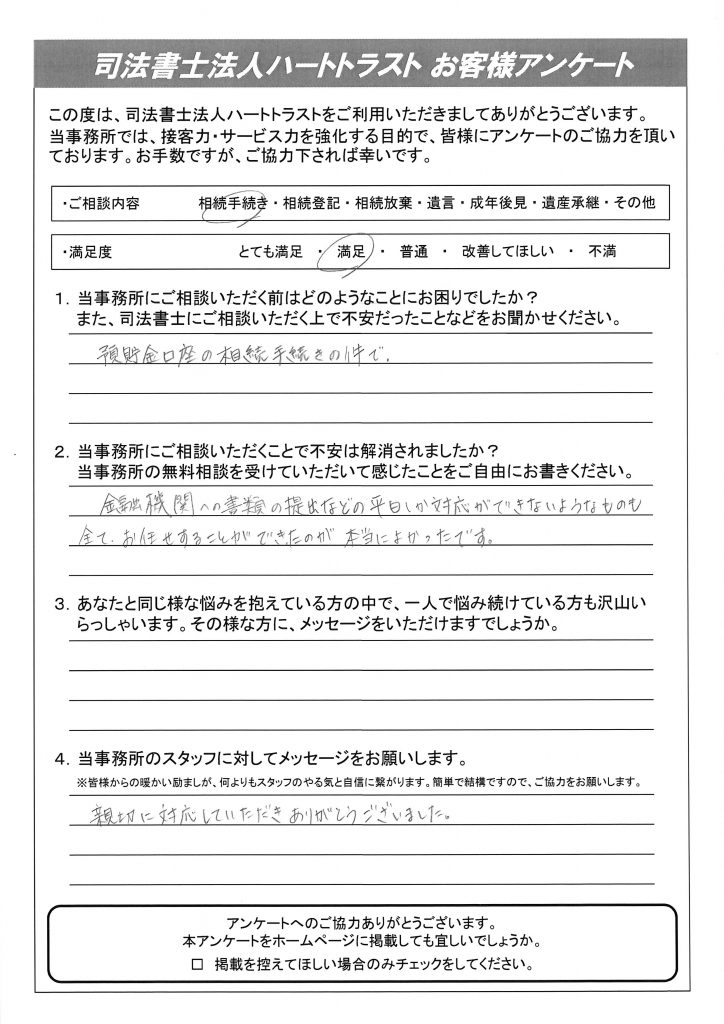 司法書士法人ハートトラスト お客様アンケート
この度は、司法書士法人ハートトラストをご利用いただきましてありがとうございます。
当事務所では、接客力・サービス力を強化する目的で、皆様にアンケートのご協力を頂いております。お手数ですが、ご協力下されば幸いです。
・ご相談内容 相続手続き・相続登記・相続放棄・遺言・成年後見・遺産承継・その他
・満足度 とても満足 ・ 満足 ・ 普通 ・ 改善してほしい ・ 不満
1. 当事務所にご相談いただく前はどのようなことにお困りでしたか？
また、司法書士にご相談いただく上で不安だったことなどをお聞かせください。
預貯金口座の相続手続きの件で.
2. 当事務所にご相談いただくことで不安は解消されましたか？
当事務所の無料相談を受けていただいて感じたことをご自由にお書きください。
金融機関への書類の提出などの平日しか対応ができないようなものも
全て、お任せすることができたのが本当によかったです。
3. あなたと同じ様な悩みを抱えている方の中で、一人で悩み続けている方も沢山い
らっしゃいます。その様な方に、メッセージをいただけますでしょうか。
4. 当事務所のスタッフに対してメッセージをお願いします。
※皆様からの暖かい励ましが、何よりもスタッフのやる気と自信に繋がります。簡単で結構ですので、ご協力をお願いします。
親切に対応していただきありがとうございました。
アンケートへのご協力ありがとうございます。
本アンケートをホームページに掲載しても宜しいでしょうか。
□ 掲載を控えてほしい場合のみチェックをしてください。